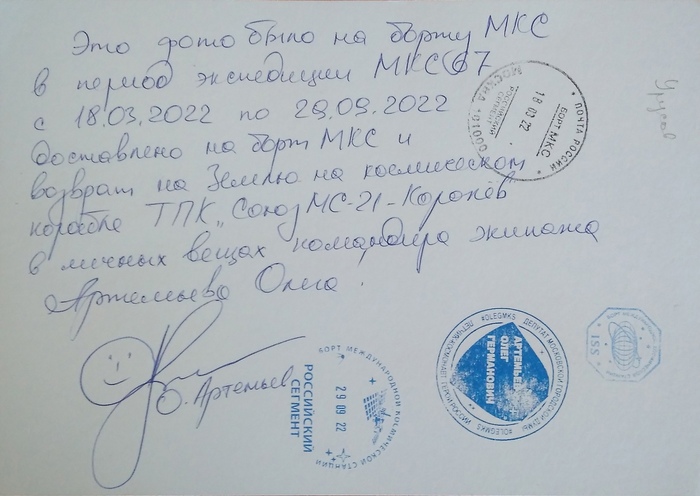 Это фото было на борту МКС
в период экспедиции МКС 67
с 18.03.2022 по 29.09.2022
доставлено на борт МКС и
возврат на Землю на космическом
корабле ТПК „Союз МС-21-Королёв"
в личных вещах командира экипажа
Артемьева Олега!
О. Артемьев
ПОЧТА РОССИИ
БОРТ МКС
18 03 22
РОССИЙСКИЙ СЕГМЕНТ
МОСКВА 101000
БОРТ МЕЖДУНАРОДНОЙ КОСМИЧЕСКОЙ СТАНЦИИ
29 09 22
РОССИЙСКИЙ
СЕГМЕНТ
ДЕПУТАТ МОСКОВСКОЙ ГОРОДСКОЙ ДУМЫ
#OLEGMKS
ЛЕТЧИК-КОСМОНАВТ ГЕРОЙ РОССИИ
#OLEGMKS
АРТЕМЬЕВ
ОЛЕГ
ГЕРМАНОВИЧ
ISS